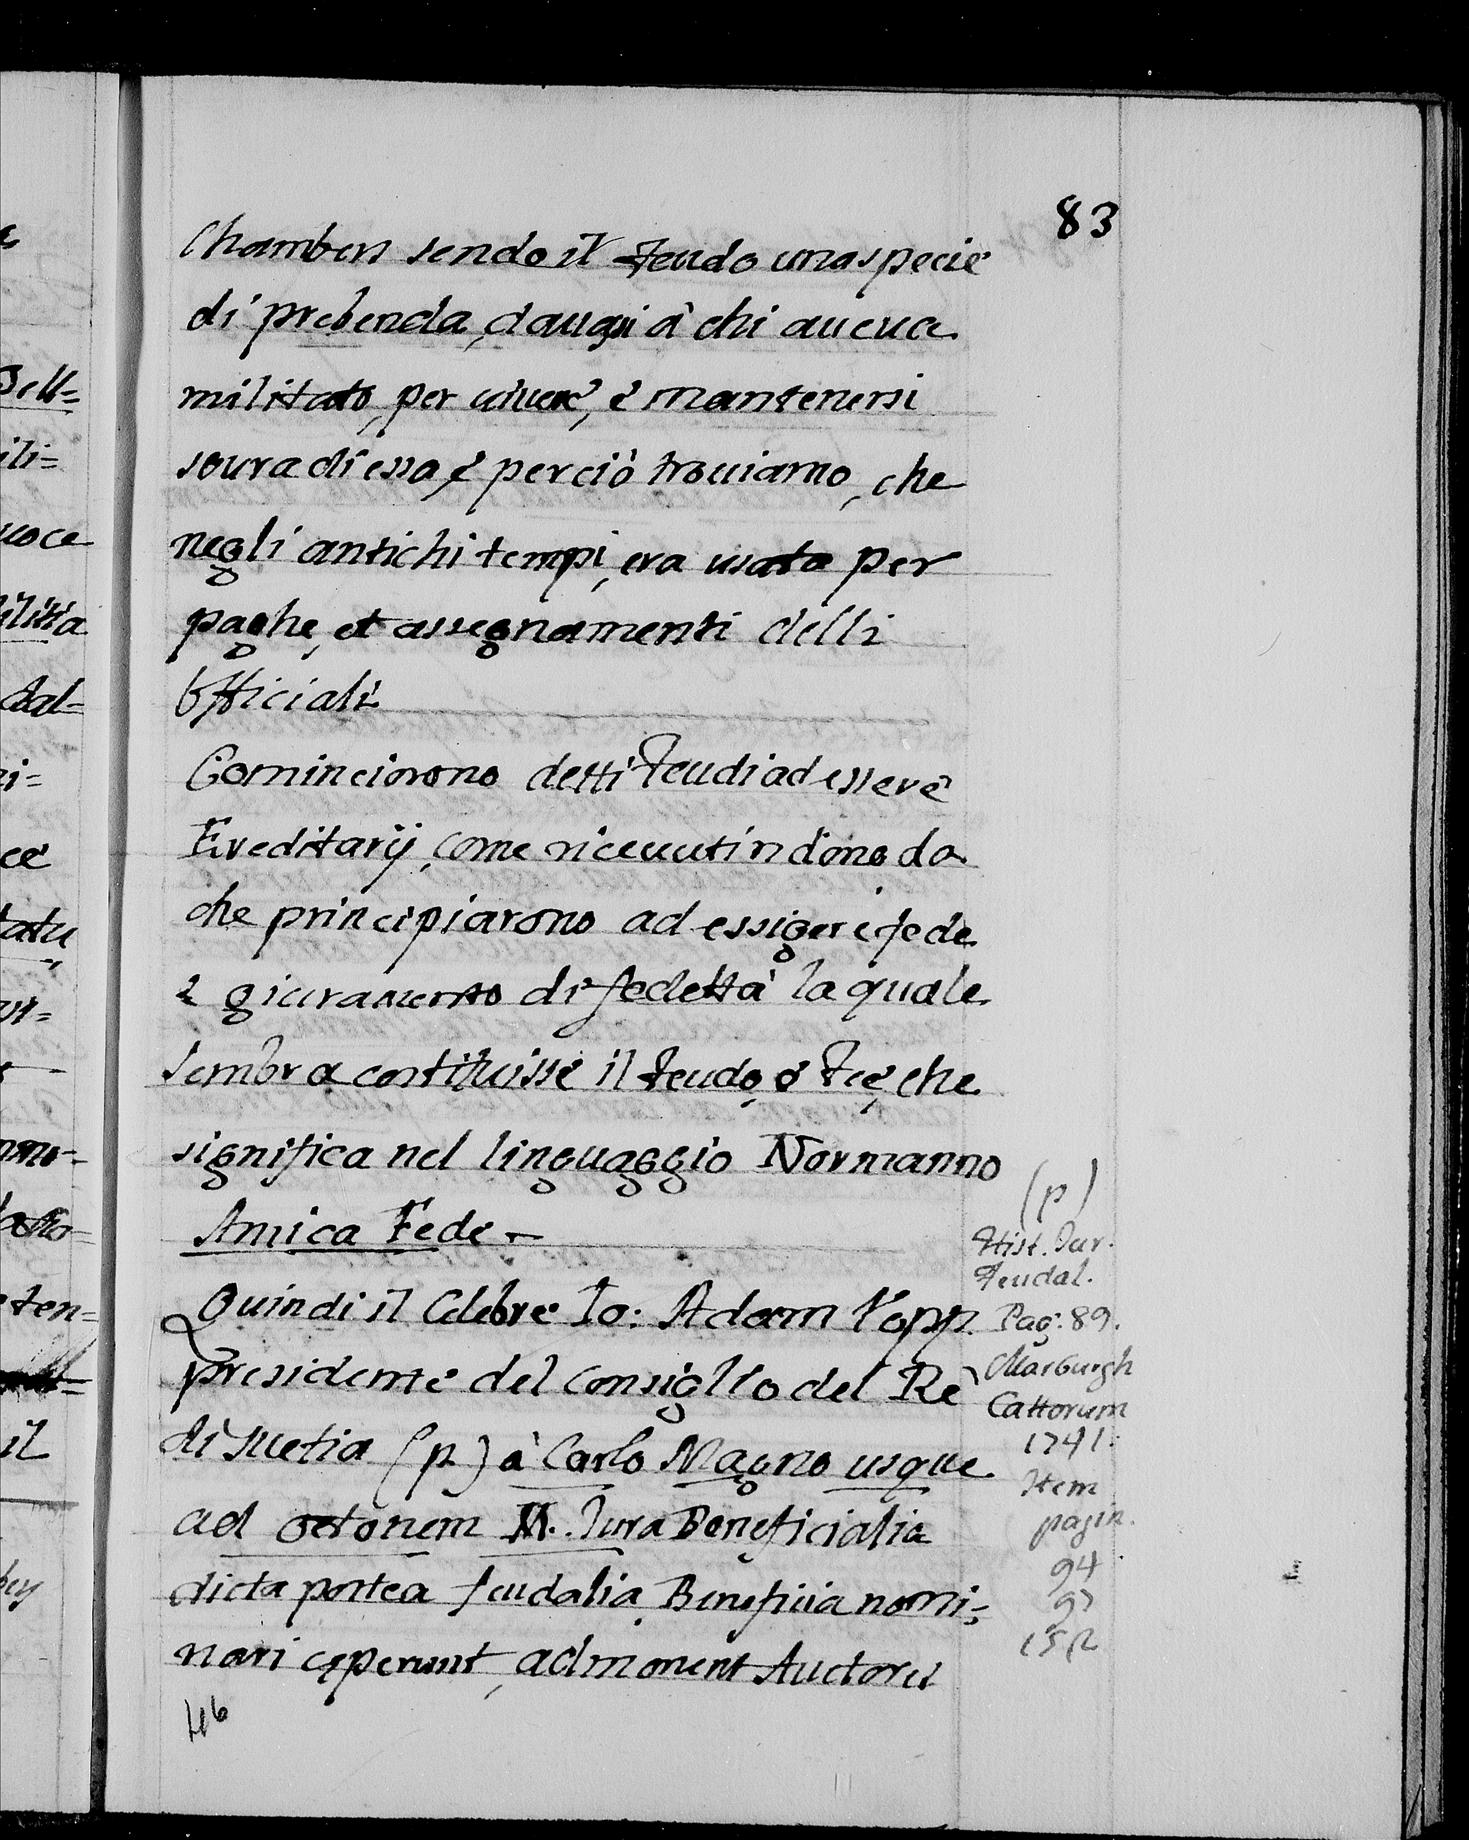 83
Chambers sendo il Feudo una specie
di prebenda, davasi à chi aveva
militato, per vivere, è mantenersi
sovra di essa, è perciò troviamo, che
negli antichi tempi, era usata per
paghe, et assegnamenti delli
Officiali
Cominciorono detti Feudi ad essere
Ereditarij, come ricevuti in dono da
che principiarono ad essigere fede
e giuramento di fedeltà la quale
sembra costituisse il Feudo, ò Feè, che
significa nel linguaggio Normanno
Amica Fede
Quindi il Celebre Io: Adam Kopp
presidente del Consiglio del Rè
di Svetia (p) à Carlo Magno usque
ad Octonem M. Jura Beneficialia
dicta postea feudalia Beneficia nomi=
nari ceperunt, admonent Auctores
(p)
Hist. Jur.
Feudal.
Pag: 89.
Marburgh
Cattorum
1741:
Item
pagin.
94
97
152
a
Dell=
ili=
voce
ilitia
dal=
ri=
ce
tatu
il